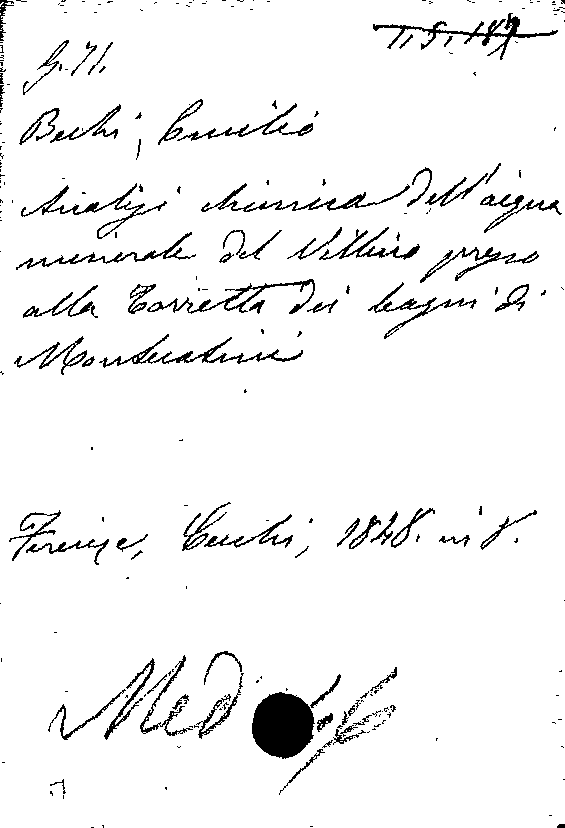 1.5.187
G.71.
Bechi, Emilio
Analisi chimica dell'acqua
minerale del Villino presso
alla Torretta dei bagni di
Montecatini
Firenze, Cecchi, 1848. in 8.
Med